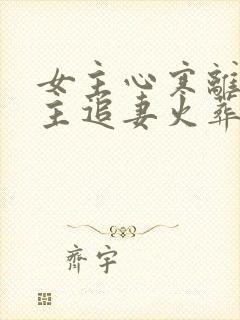 女主心寒離
主追妻火葬
齊宇